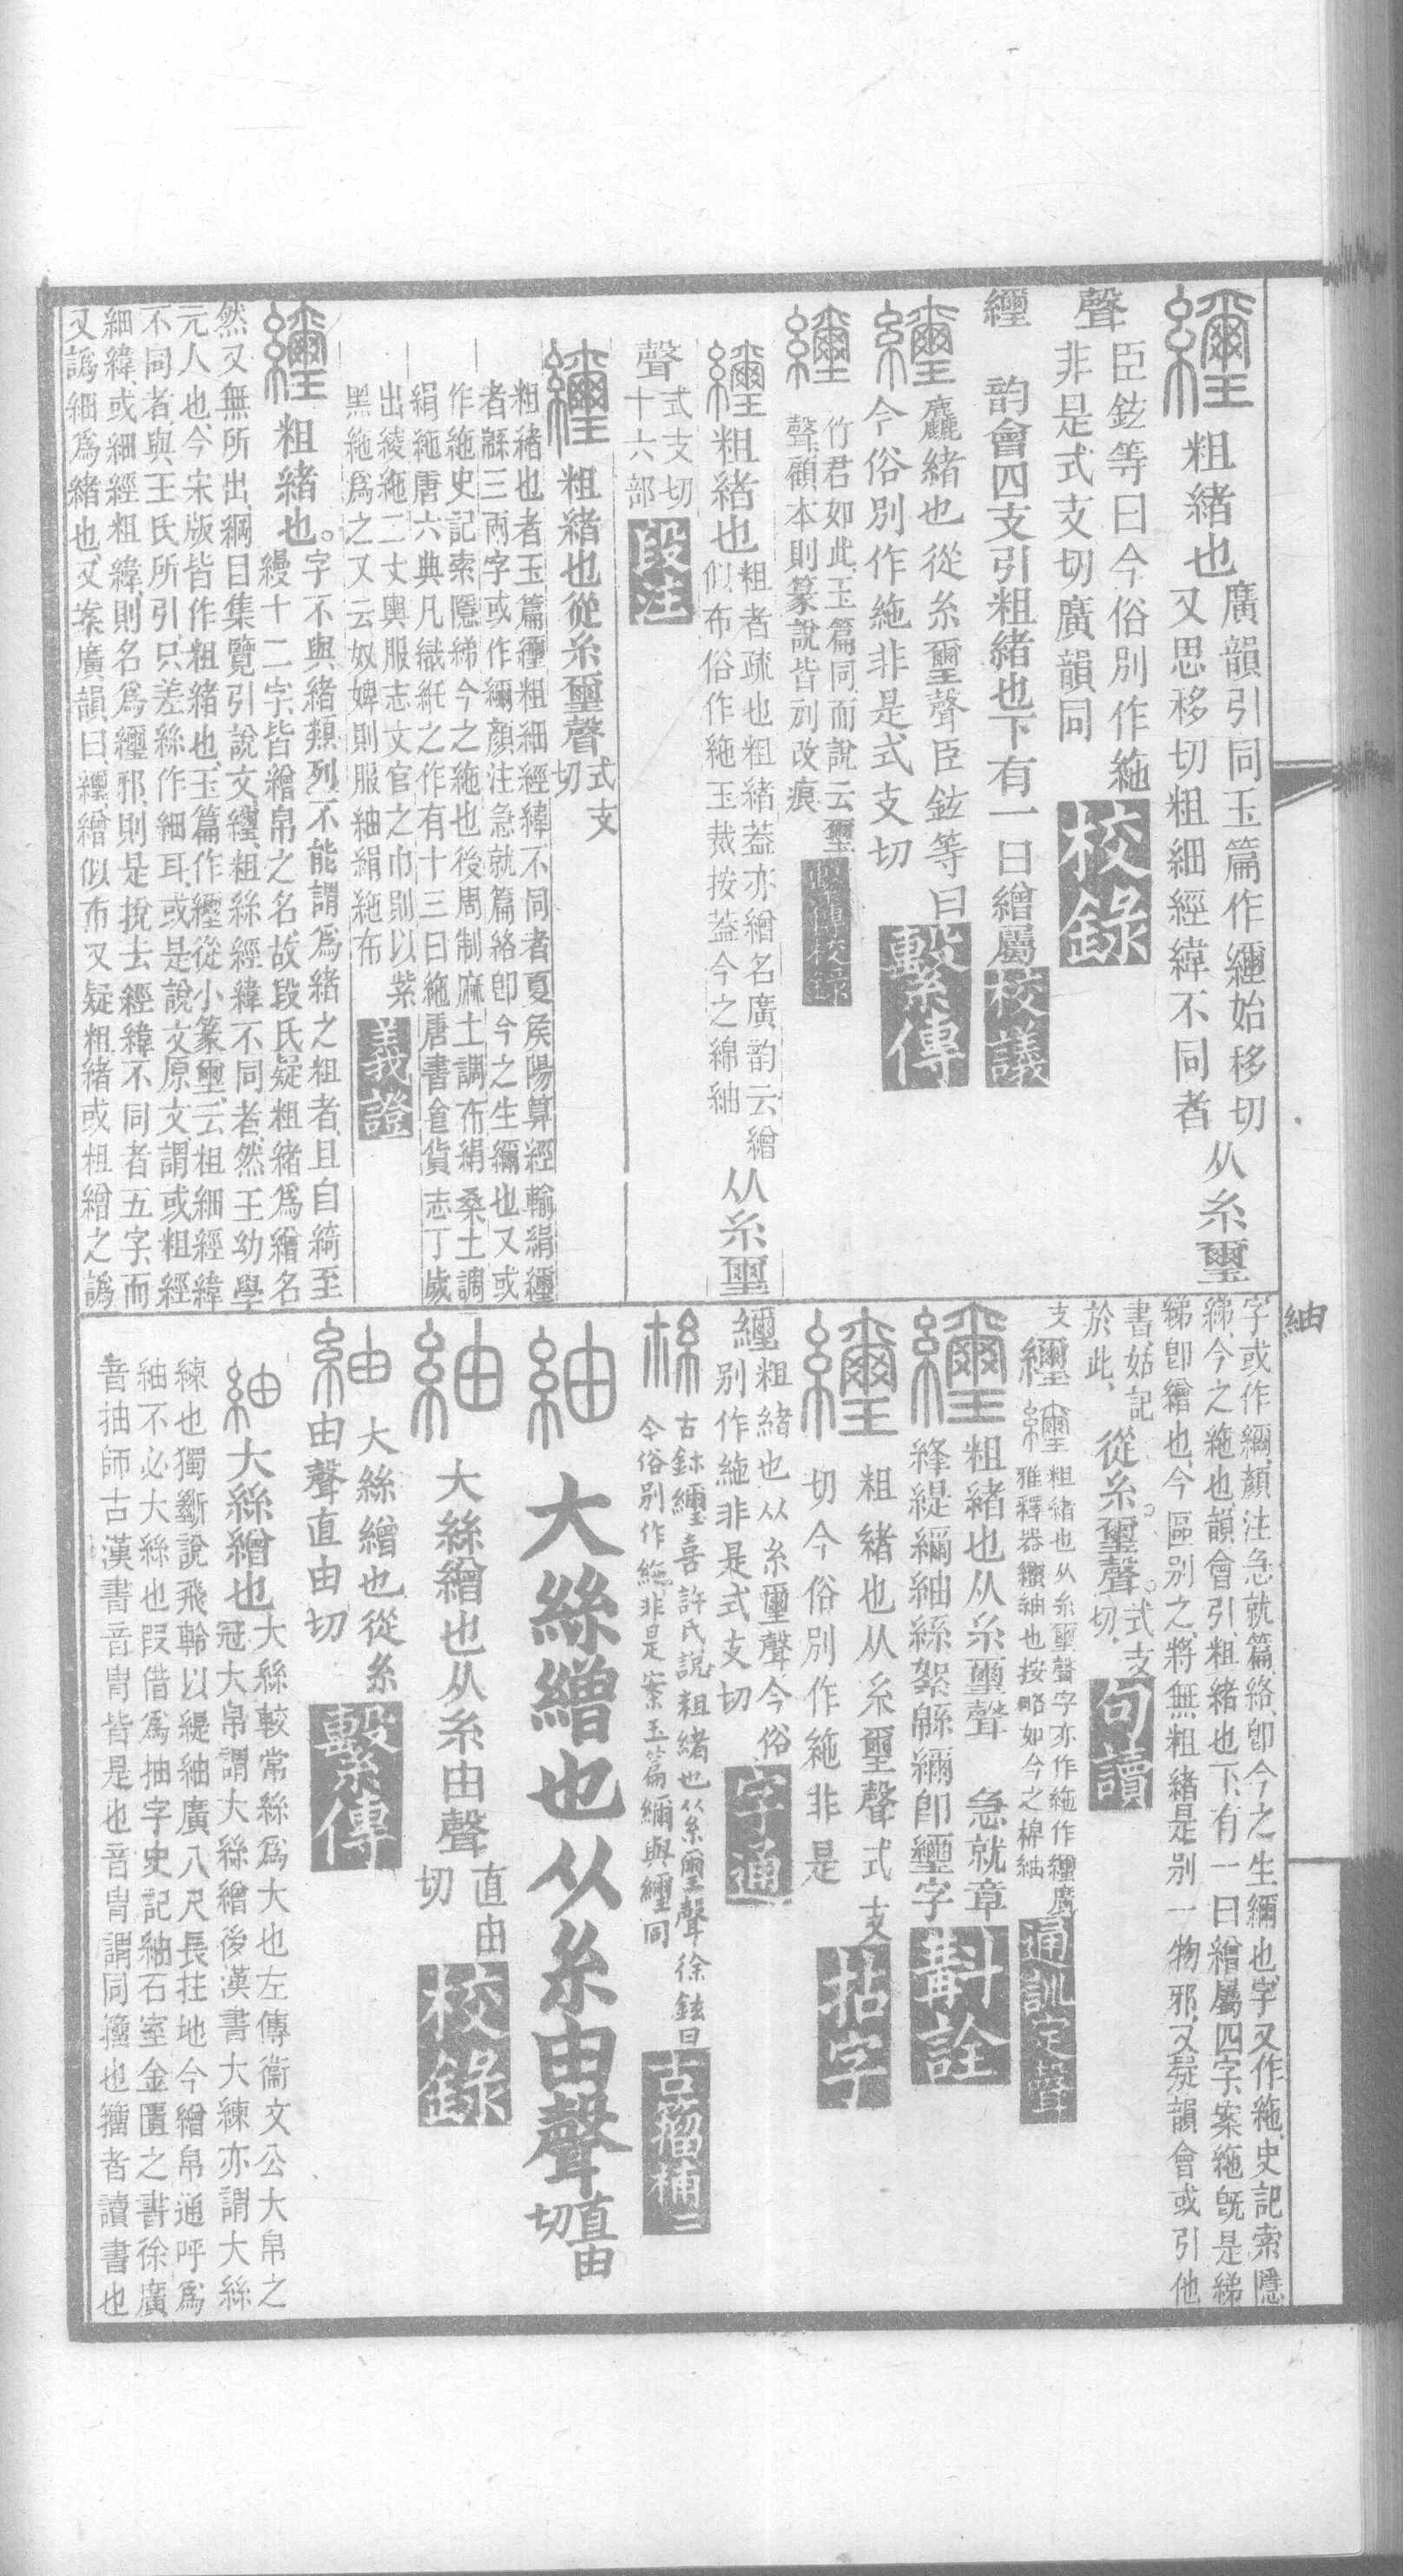 纆 粗緒也
廣韻引同玉篇作繝始移切
又思移切粗細經緯不同者
从糸璽
聲
臣鉉等曰今俗別作絁
非是式支切廣韻同
校錄
韵會四支引粗緒也下有一曰繒屬
校議
麤緒也從糸璽聲臣鉉等曰
今俗別作絁非是式支切
繫傳
竹君如此玉篇同而說云璽
聲顧本則篆說皆刓改痕
繫傳校錄
粗緒也
粗者疏也粗緒葢亦繒名廣韵云繒
似布俗作絁玉裁按葢今之綿紬
从糸璽
聲
式支切
十六部
段注
粗緒也從糸璽聲
式支
切
粗緒也者玉篇繝粗細經緯不同者夏侯陽算經輸絹繝
者緜三兩字或作繝顏注急就篇絡即今之生繝也又或
作絁史記索隱綈今之絁也後周制麻土調布絹桑土調
絹絁唐六典凡織紝之作有十三曰絁唐書食貨志丁歲
出綾絁二丈輿服志文官之巾則以紫
黑絁爲之又云奴婢則服紬絹絁布
義證
粗緒也。
字不與緒類列不能謂爲緒之粗者且自綺至
縵十二字皆繒帛之名故段氏疑粗緒爲繒名
然又無所出綱目集覽引說文纆粗絲經緯不同者然王幼學
元人也今宋版皆作粗緒也玉篇作纆從小篆璽云粗細經緯
不同者與王氏所引只差絲作細耳或是說文原文謂或粗經
細緯或細經粗緯則名爲纆邪則是挩去經緯不同者五字而
又譌細爲緒也又案廣韻曰纆繒似布又疑粗緒或粗繒之譌
紬
字或作繝顏注急就篇絡即今之生繝也字又作絁史記索隱
綈今之絁也韻會引粗緒也下有一曰繒屬四字案絁旣是綈
綈即繒也今區別之將無粗緒是別一物邪又疑韻會或引他
書姑記
於此
從糸璽聲。
式支
切
句讀
支
粗緒也从糸璽聲字亦作絁作纆廣
雅釋器紬也按略如今之棉紬
通訓定聲
粗緒也从糸璽聲 急就章
絳緹繝紬絲絮緜繝即璽字
斠詮
粗緒也从糸璽聲式支
切今俗別作絁非是
拈字
粗緒也从糸璽聲今俗
別作絁非是式支切
字通
古鉢繝喜許氏說粗緒也从糸璽聲徐鉉曰
今俗別作絁非是案玉篇繝與纆同
古籀補二
紬 大絲繒也从糸由聲
直由
切
紬 大絲繒也从糸由聲
直由
切
校錄
紬 大絲繒也從糸
由聲直由切
繫傳
紬 大絲繒也
大絲較常絲爲大也左傳衞文公大帛之
冠大帛謂大絲繒後漢書大練亦謂大絲
練也獨斷說飛軨以緹紬廣八尺長拄地今繒帛通呼爲
紬不必大絲也叚借爲抽字史記紬石室金匱之書徐廣
音抽師古漢書音胄皆是也音胄謂同籒也籒者讀書也